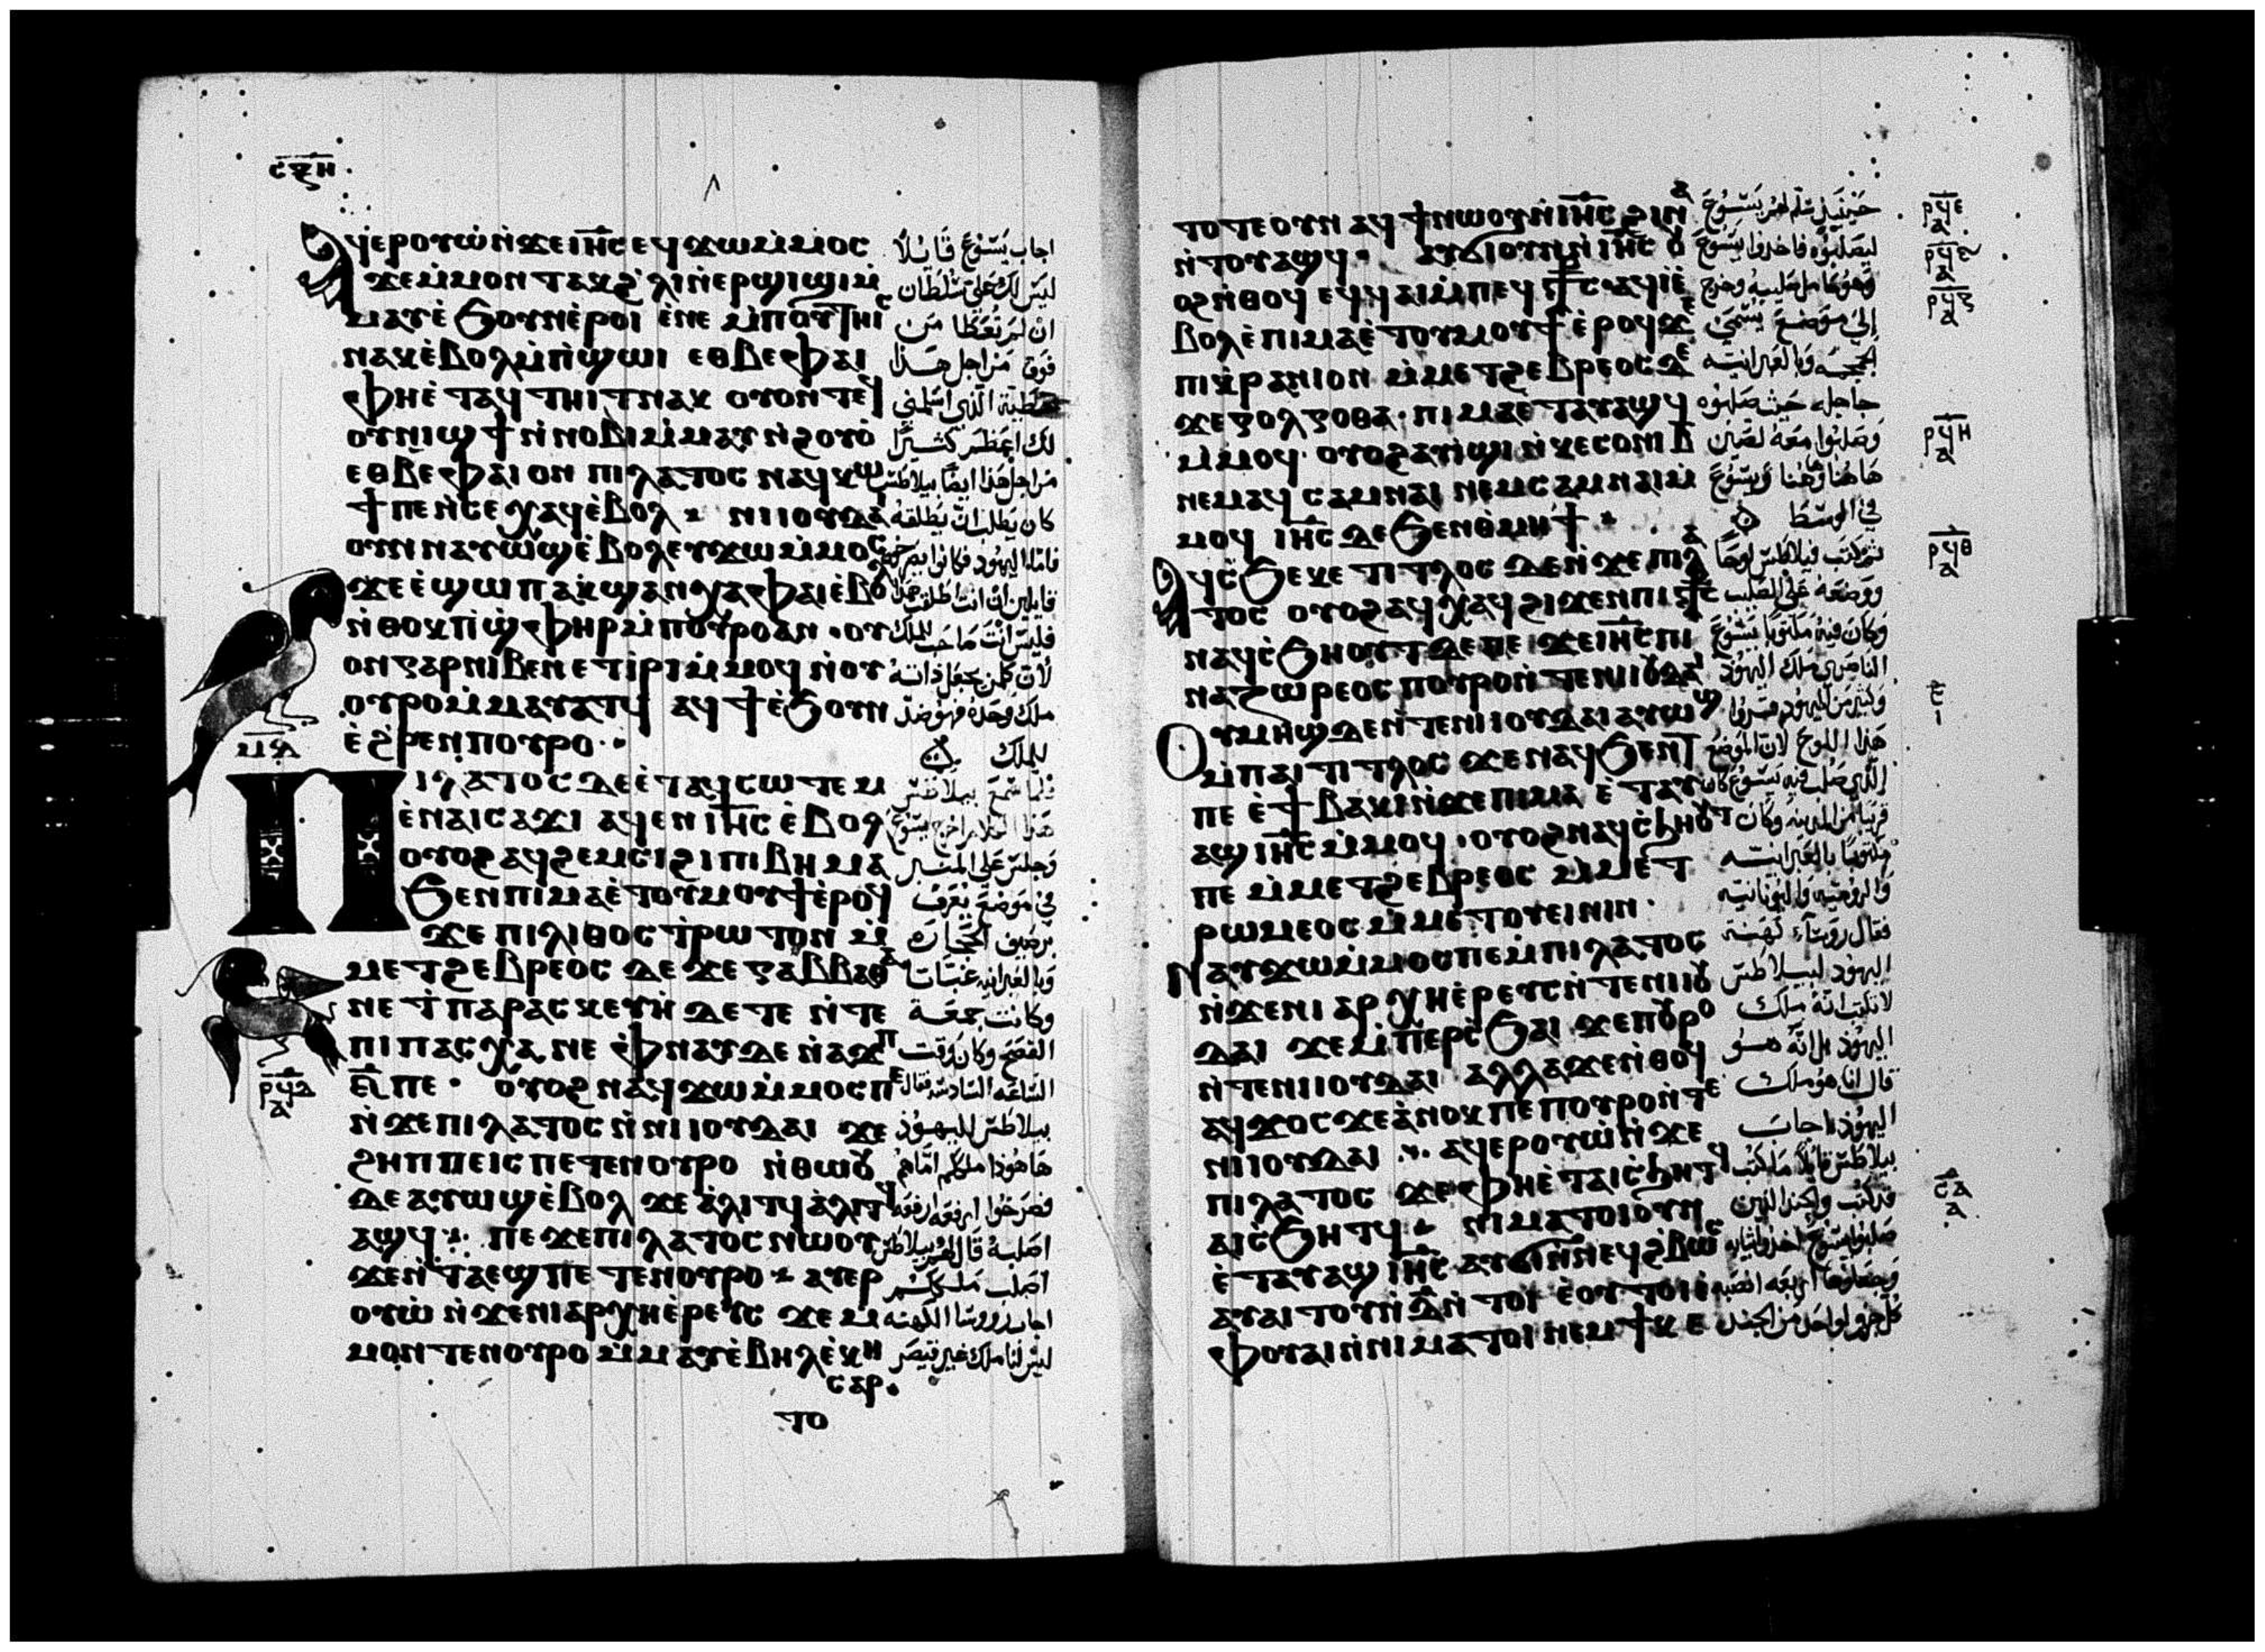 ⲥⲝⲏ
ⲁϥⲉⲣⲟⲩⲱ ⲛ̀ϫⲉ ⲓⲏ̅ⲥ ⲉϥϫⲱ ⲙ̀ⲙⲟⲥ
ϫⲉ ⲙ̀ⲙⲟⲛ ⲧⲁⲕ ϩ̀ⲗⲓ ⲛ̀ⲉⲣϣⲓϣⲓ ⲙ̀
ⲙⲁⲩ ⲉ̀ϧⲟⲩⲛ ⲉ̀ⲣⲟⲓ ⲉ̀ⲛⲉ ⲙ̀ⲡⲟⲩⲧⲏⲓⲥ
ⲛⲁⲕ ⲉ̀ⲃⲟⲗ ⲙ̀ⲡ̀ϣⲱⲓ ⲉⲑⲃⲉ ⲫⲁⲓ
ⲫⲏ ⲉ̀ⲧⲁϥⲧⲏⲓⲧ ⲛⲁⲕ ⲟⲩⲟⲛ ⲧⲉϥ
ⲟⲩⲛⲓϣϯ ⲛ̀ⲛⲟⲃⲓ ⲙ̀ⲙⲁⲩ ⲛ̀ϩⲟⲩⲟ̀
ⲉⲑⲃⲉ ⲫⲁⲓ ⲟⲛ ⲡⲓⲗⲁⲧⲟⲥ ⲛⲁϥⲕⲱ
ϯ ⲡⲉ ⲛ̀ⲥⲉ ⲭⲁϥ ⲉ̀ⲃⲟⲗ ⲛⲓⲓⲟⲩⲇⲁⲓ
ⲟⲩⲛ ⲛⲁⲩⲱϣ ⲉ̀ⲃⲟⲗ ⲉⲩϫⲱ ⲙ̀ⲙⲟⲥ
ϫⲉ ⲉ̀ϣⲱⲡ ⲁⲕϣⲁⲛⲭⲁ ⲫⲁⲓ ⲉ̀ⲃⲟⲗ
ⲛ̀ⲑⲟⲕ ⲡ̀ϣⲫⲏⲣ ⲙ̀ⲡⲟⲩⲣⲟ ⲁⲛ ⲟⲩ
ⲟⲛ ⲅⲁⲣ ⲛⲓⲃⲉⲛ ⲉⲧⲓ̀ⲣⲓ ⲙ̀ⲙⲟϥ ⲛ̀ⲟⲩ
ⲟⲩⲣⲟ ⲙ̀ⲙⲁⲩⲁⲧϥ ⲁϥϯ ⲉ̀ϧⲟⲩⲛ
ⲉ̀ϩ̀ⲣⲉⲛ ⲡⲟⲩⲣⲟ
ⲡⲓⲗⲁⲧⲟⲥ ⲇⲉ ⲉ̀ⲧⲁϥⲥⲱⲧⲉⲙ
ⲉ̀ⲛⲁⲓⲥⲁϫⲓ ⲁϥⲉⲛ ⲓⲏ̅ⲥ ⲉ̀ⲃⲟⲗ
ⲟⲩⲟϩ ⲁϥϩⲉⲙⲥⲓ ϩⲓ ⲡⲓⲃⲏⲙⲁ
ϧⲉⲛ ⲡⲓⲙⲁ ⲉ̀ⲧⲟⲩⲙⲟⲩϯ ⲉ̀ⲣⲟϥ
ϫⲉ ⲡⲓⲗⲓⲑⲟⲥⲧⲣⲱⲧⲟⲛ ⲙ̀
ⲙⲉⲧϩⲉⲃⲣⲉⲟⲥ ⲇⲉ ϫⲉ ⲅⲁⲃⲃⲁⲑⲁ
ⲛⲉ ϯⲡⲁⲣⲁⲥⲕⲉⲩⲏ̀ ⲇⲉ ⲧⲉ ⲛ̀ⲧⲉ
ⲡⲓⲡⲁⲥⲭⲁ ⲛⲉ ⲫ̀ⲛⲁⲩ ⲇⲉ ⲛ̀ⲁϫⲡ
ⲟⲩⲟϩ ⲛⲁϥϫⲱ ⲙ̀ⲙⲟⲥ ⲡⲉ
ⲛ̀ϫⲉ ⲡⲓⲗⲁⲧⲟⲥ ⲛ̀ⲛⲓⲓⲟⲩⲇⲁⲓ ϫⲉ
ϩⲏⲡⲡⲉ ⲓⲥ ⲡⲉⲧⲉⲛⲟⲩⲣⲟ ⲛ̀ⲑⲱⲟⲩ
ⲇⲉ ⲁⲩⲱϣ ⲉ̀ⲃⲟⲗ ϫⲉ ⲁ̀ⲗⲓⲧϥ ⲁ̀ⲗⲓⲧϥ
ⲁϣϥ ⲡⲉϫⲉ ⲡⲓⲗⲁⲧⲟⲥ ⲛⲱⲟⲩ
ϫⲉ ⲛ̀ⲧⲁⲉϣ ⲡⲉⲧⲉⲛⲟⲩⲣⲟ ⲁⲩⲉⲣ
ⲟⲩⲱ̀ ⲛ̀ϫⲉ ⲛⲓⲁⲣⲭⲏⲉ̀ⲣⲉⲩⲥ ϫⲉ ⲙ̀
ⲙⲟⲛ ⲧⲉⲛ ⲟⲩⲣⲟ ⲙ̀ⲙⲁⲩ ⲉ̀ⲃⲏⲗ ⲉ̀ⲕⲏ
ⲥⲁⲣ
ⲧⲟ
اجاب يسوع قايلا
ليس لك علي سلطان
ان لم تعطا من
فوق من اجل هذا
خطية الذي اسلمني
لك اعظم كثيرا
من اجل هذا ايضا بيلاطس
كان يطلب ان يطلقه
فاما اليهود فكانوا يصرخون
قايلين ان انت اطلقت هذا
فليس انت محب للملك
لان كل من يجعل ذاته
ملك وحده فهو ضد
للملك
فلما سمع بيلاطس
هذا الكلام اخرج يسوع
وجلس على المنبر
في موضع يعرف
برصيف الحجارة
وكانت جمعة
الفصح وكان وقت
الساعة السادسة فقال
بيلاطس لليهود
هاهوذا ملككم اماهم
فصرخوا ارفعه ارفعه
اصلبه قال لهم بيلاطس
اصلب ملككم
اجاب روسا الكهنة
ليس لنا ملك غير قيصر
ⲙⲇ
ⲣϥⲇ
ⲁ
ⲧⲟⲧⲉ ⲟⲩⲛ ⲁϥϯ ⲛⲱⲟⲩ ⲛ̀ⲓⲏ̅ⲥ ϩⲓⲛⲁ
ⲛ̀ⲧⲟⲩⲁϣϥ ⲁⲩϭⲓ ⲟⲩⲛ ⲛ̀ⲓⲏ̅ⲥ ⲟⲩ
ⲟϩ ⲛ̀ⲑⲟϥ ⲉϥϥⲁⲓ ⲙ̀ⲡⲉϥⲥ̅ⲧ̅ⲥ ⲁϥⲓ̀ ⲉ̀
ⲃⲟⲗ ⲉ̀ⲡⲓⲙⲁ ⲉ̀ⲧⲟⲩⲙⲟⲩϯ ⲉ̀ⲣⲟϥ ϫⲉ
ⲡⲓⲕ̀ⲣⲁⲛⲓⲟⲛ ⲙ̀ⲙⲉⲧϩⲉⲃⲣⲉⲟⲥ ⲇⲉ
ϫⲉ ⲅⲟⲗⲅⲟⲑⲁ ⲡⲓⲙⲁ ⲉ̀ⲧⲁⲩⲁϣϥ
ⲙ̀ⲙⲟϥ ⲟⲩⲟϩ ⲁⲩⲓ̀ϣⲓ ⲛ̀ⲕⲉⲥⲟⲛⲓ ⲃ̅
ⲛⲉⲙⲁϥ ⲥⲁⲙⲛⲁⲓ ⲛⲉⲙ ⲥⲁⲙⲛⲁⲓ ⲙ̀
ⲙⲟϥ ⲓⲏ̅ⲥ ⲇⲉ ϧⲉⲛ ⲑ̀ⲙⲏϯ
ⲁϥⲥ̀ϧⲉ ⲕⲉ ⲧⲓⲧⲗⲟⲥ ⲇⲉ ⲛ̀ϫⲉ ⲡⲓⲗⲁ
ⲧⲟⲥ ⲟⲩⲟϩ ⲁϥⲭⲁϥ ϩⲓϫⲉⲛ ⲡⲓⲥ̅ⲧ̅ⲥ
ⲛⲁϥⲥ̀ϧⲏⲟⲩⲧ ⲇⲉ ⲡⲉ ϫⲉ ⲓⲏ̅ⲥ ⲡⲓ
ⲛⲁⲍⲱⲣⲉⲟⲥ ⲡⲟⲩⲣⲟ ⲛ̀ⲧⲉ ⲛⲓⲓⲟⲩⲇⲁⲓ
ⲟⲩⲙⲏϣ ⲇⲉ ⲛ̀ⲧⲉ ⲛⲓⲓⲟⲩⲇⲁⲓ ⲁⲩⲱϣ
ⲙ̀ⲡⲁⲓⲧⲓⲧⲗⲟⲥ ϫⲉ ⲛⲁϥϧⲉⲛⲧ
ⲡⲉ ⲉ̀ϯⲃⲁⲕⲓ ⲛ̀ϫⲉ ⲡⲓⲙⲁ ⲉ̀ⲧⲁⲩ
ⲁϣ ⲓⲏ̅ⲥ ⲙ̀ⲙⲟϥ ⲟⲩⲟϩ ⲛⲁϥⲥ̀ϧⲏⲟⲩⲧ
ⲡⲉ ⲙ̀ⲙⲉⲧϩⲉⲃⲣⲉⲟⲥ ⲙ̀ⲙⲉⲧ
ⲣⲱⲙⲉⲟⲥ ⲙ̀ⲙⲉⲧⲟⲩⲉⲓⲛⲓⲛ
ⲛⲁⲩϫⲱ ⲙ̀ⲙⲟⲥ ⲡⲉ ⲙ̀ⲡⲓⲗⲁⲧⲟⲥ
ⲛ̀ϫⲉ ⲛⲓⲁⲣⲭⲏⲉ̀ⲣⲉⲩⲥ ⲛ̀ⲧⲉ ⲛⲓⲓⲟⲩ
ⲇⲁⲓ ϫⲉ ⲙ̀ⲡⲉⲣⲥ̀ϧⲁⲓ ϫⲉ ⲡⲟⲩⲣⲟ
ⲛ̀ⲧⲉ ⲛⲓⲓⲟⲩⲇⲁⲓ ⲁⲗⲗⲁ ϫⲉ ⲛ̀ⲑⲟϥ
ⲁϥϫⲟⲥ ϫⲉ ⲁ̀ⲛⲟⲕ ⲡⲉ ⲡⲟⲩⲣⲟ ⲛ̀ⲧⲉ
ⲛⲓⲓⲟⲩⲇⲁⲓ ⲁϥⲉⲣⲟⲩⲱ̀ ⲛ̀ϫⲉ
ⲡⲓⲗⲁⲧⲟⲥ ϫⲉ ⲫⲏ ⲉ̀ⲧⲁⲓⲥ̀ϧⲏⲧϥ
ⲁⲓⲥ̀ϧⲏⲧϥ ⲛⲓⲙⲁⲧⲟⲓ ⲟⲩⲛ
ⲉ̀ⲧⲁⲩⲁϣ ⲓⲏ̅ⲥ ⲁⲩϭⲓ ⲛ̀ⲛⲉϥϩⲃⲱⲥ
ⲁⲩⲁⲓⲧⲟⲩ ⲛ̀ⲇ̅ ⲛ̀ⲧⲟⲓ ⲉ̀ⲟⲩⲧⲟⲓ ⲉ̀
ⲫⲟⲩⲁⲓ ⲛ̀ⲛⲓⲙⲁⲧⲟⲓ ⲛⲉⲙ ϯⲕⲉ
حينيذ سلمه لهم يسوع
ليصلبوه فاخذوا يسوع
وهو حامل صليبه وخرج
إلى موضع يسمى
الجمجمة وبالعبرانية
جاجلة حيث صلبوه
وصلبوا معه لصين
هاهنا وهنا ويسوع
في الوسط
ثم كتب فيلاطس لوحا
ووضعه على الصليب
وكان فيه مكتوبا يسوع
الناصري ملك اليهود
هذا اللوح لان الموضع
الذي صلب فيه يسوع كان
قريبا من المدينة وكان
مكتوبا بالعبرانية
والرومية واليونانية
فقال روساء كهنة
اليهود لبيلاطس
لا تكتب انه ملك
اليهود بل انه هو
قال انا هو ملك
اليهود اجاب
بيلاطس قايلا ما كتبت
قد كتبت
ⲣϥⲉ
ⲁ
ⲣϥⲋ
ⲁ
ⲣϥⲍ
ⲁ
ⲣϥⲏ
ⲁ
ⲣϥⲑ
ⲁ
ⲥ
ⲓ
ⲥⲁ
ⲁ